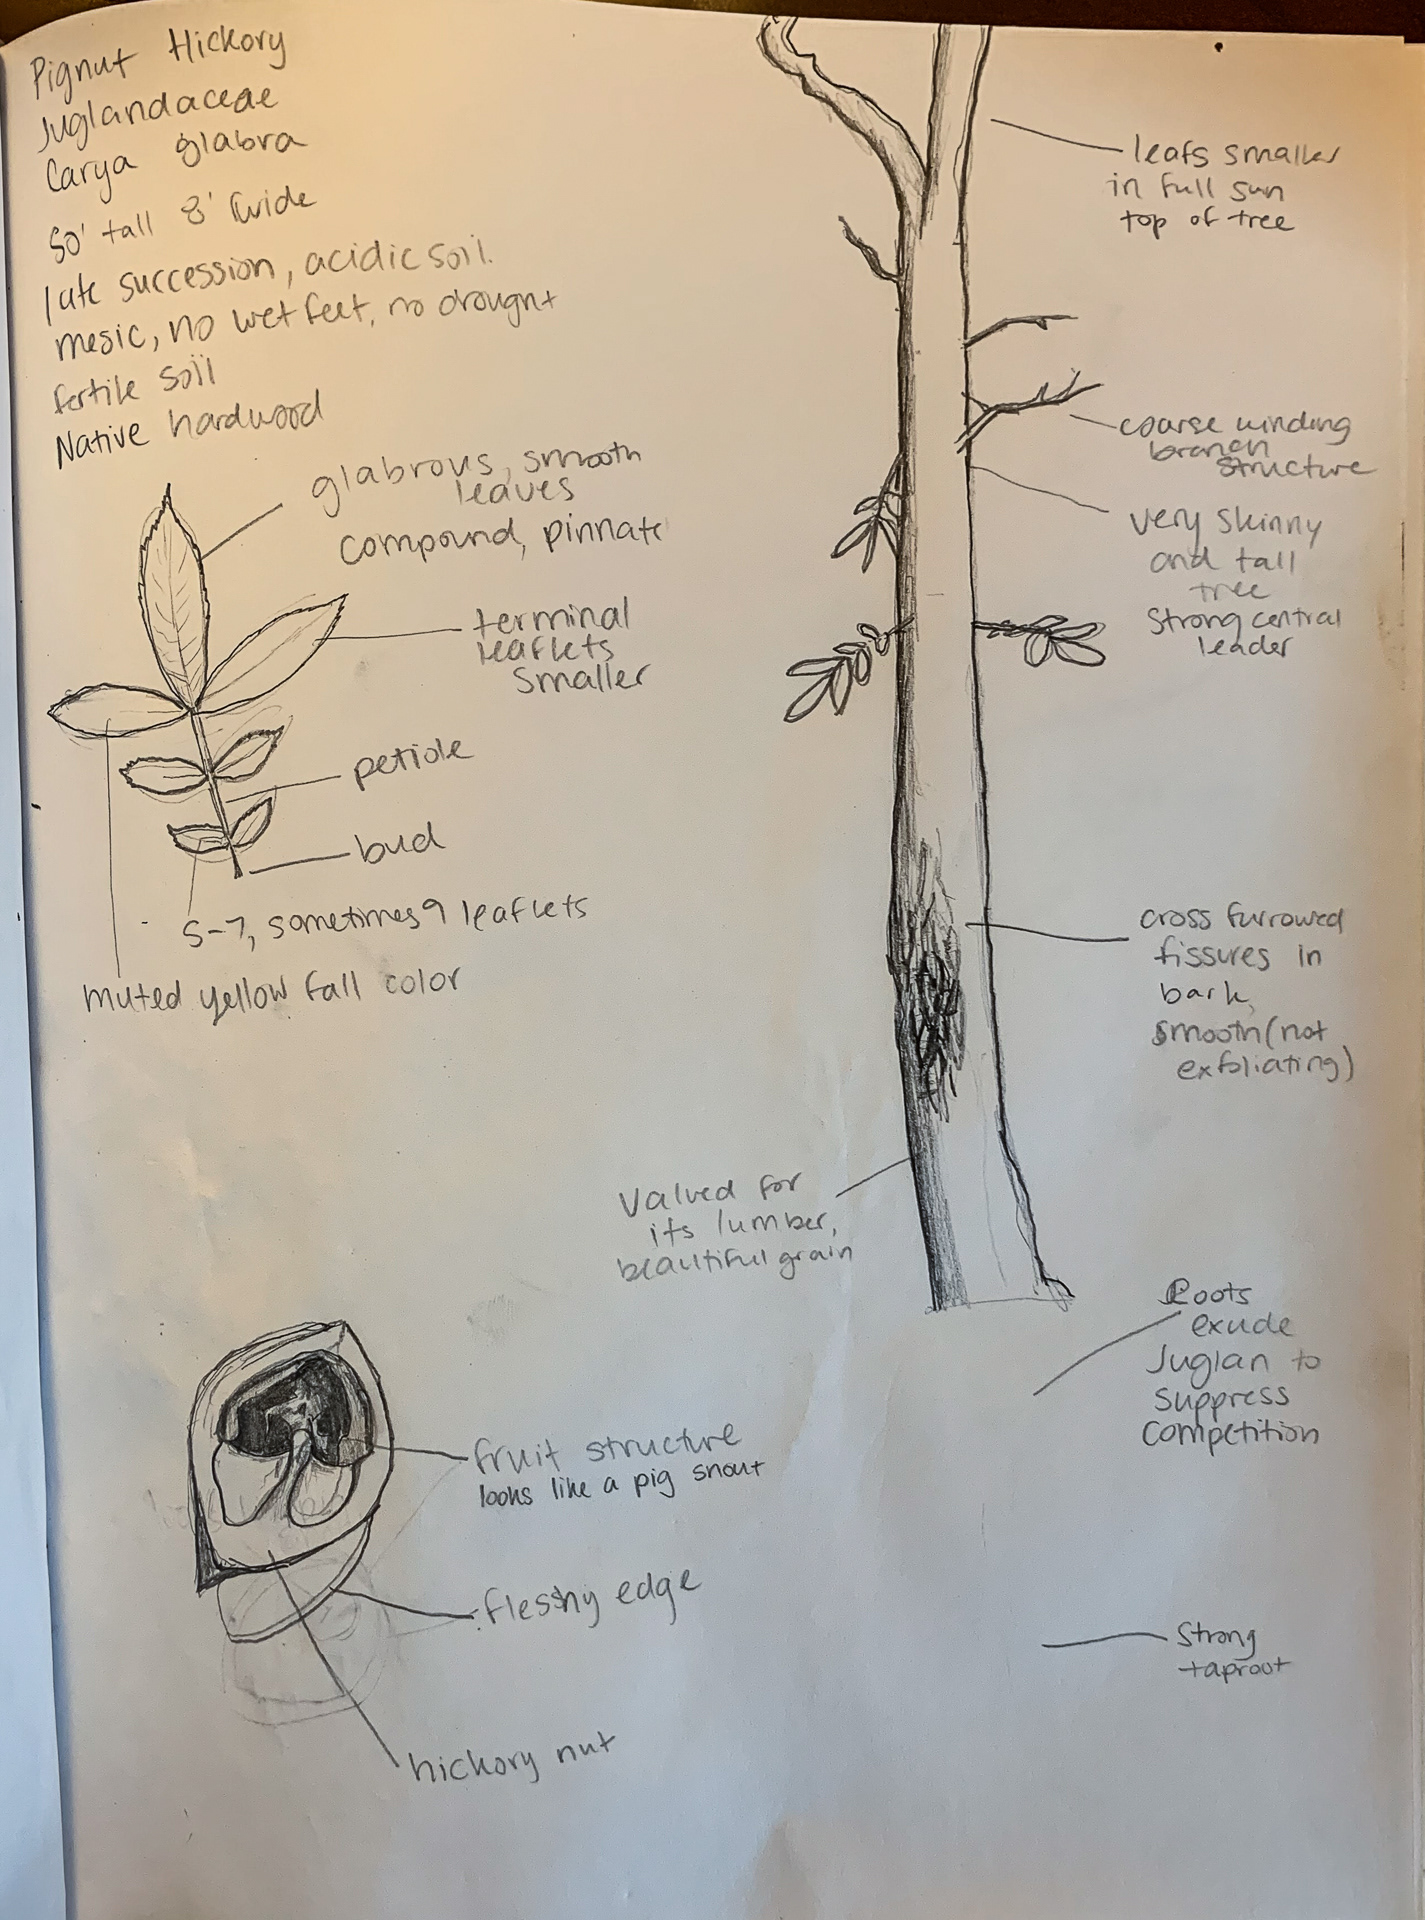 Pignut Hickory
Juglandaceae
Carya glabra
50' tall 8' wide
late succession, acidic soil.
mesic, no wet feet, no drought
fertile soil
Native hardwood
glabrous, smooth
leaves
compound, pinnate
terminal
leaflets
smaller
petiole
bud
5-7, sometimes 9 leaflets
muted yellow fall color
leafs smaller
in full sun
top of tree
coarse winding
branch
structure
very skinny
and tall
tree
Strong central
leader
cross furrowed
fissures in
bark,
smooth (not
exfoliating)
Valued for
its lumber,
beautiful grain
Roots
exude
Juglan to
suppress
competition
fruit structure
looks like a pig snout
fleshy edge
hickory nut
Strong
taproot